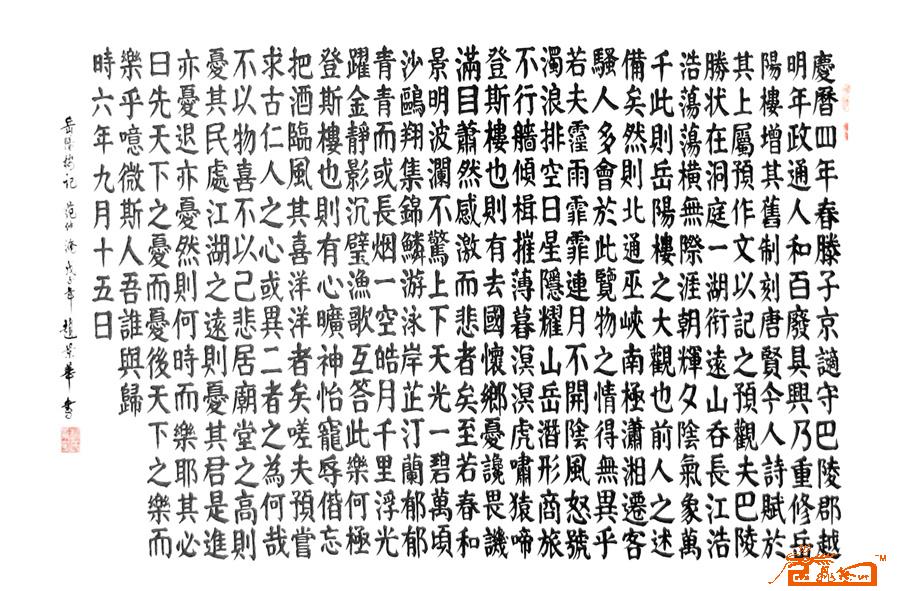 慶曆四年春滕子京謫守巴陵郡越
明年政通人和百廢具興乃重修岳
陽樓增其舊制刻唐賢今人詩賦於
其上屬預作文以記之預觀夫巴陵
勝状在洞庭一湖銜遠山吞長江浩
浩蕩蕩橫無際涯朝輝夕陰氣象萬
千此則岳陽樓之大觀也前人之述
備矣然則北通巫峽南極瀟湘遷客
騷人多會於此覽物之情得無異乎
若夫霪雨霏霏連月不開陰風怒號
濁浪排空日星隱耀山岳潛形商旅
不行艢傾楫摧薄暮溟溟虎嘯猿啼
登斯樓也則有去國懷鄉憂讒畏譏
滿目蕭然感激而悲者矣至若春和
景明波瀾不驚上下天光一碧萬頃
沙鷗翔集錦鱗游泳岸芷汀蘭郁郁
青青而或長烟一空皓月千里浮光
躍金靜影沉璧漁歌互答此樂何極
登斯樓也則有心曠神怡寵辱偕忘
把酒臨風其喜洋洋者矣嗟夫預嘗
求古仁人之心或異二者之為何哉
不以物喜不以己悲居廟堂之高則
憂其民處江湖之遠則憂其君是進
亦憂退亦憂然則何時而樂耶其必
曰先天下之憂而憂後天下之樂而
樂乎噫微斯人吾誰與歸
時六年九月十五日
岳陽樓記 范仲淹 戊子年 趙景華書